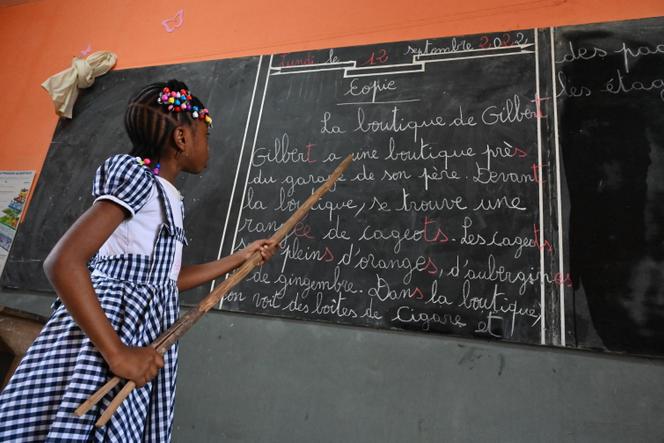 Lundi le 12 septembre 2022
Copie
La boutique de Gilbert
Gilbert a une boutique près
du garage de son père. Devant
la boutique, se trouve une
rangée de cageots. Les cageots
pleins d'oranges, d'aubergines
de gingembre. Dans la boutique,
on voit des boîtes de Cigare et
des pa
les étag